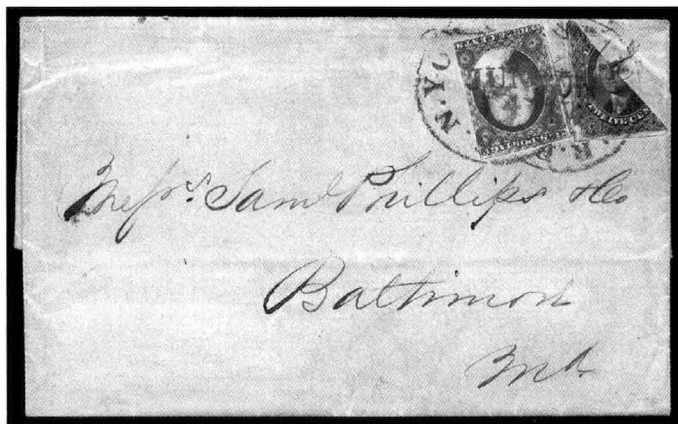 N.YO
JUL
TWELVE CEN
Messrs. Saml Phillips & Co
Baltimore
Md.